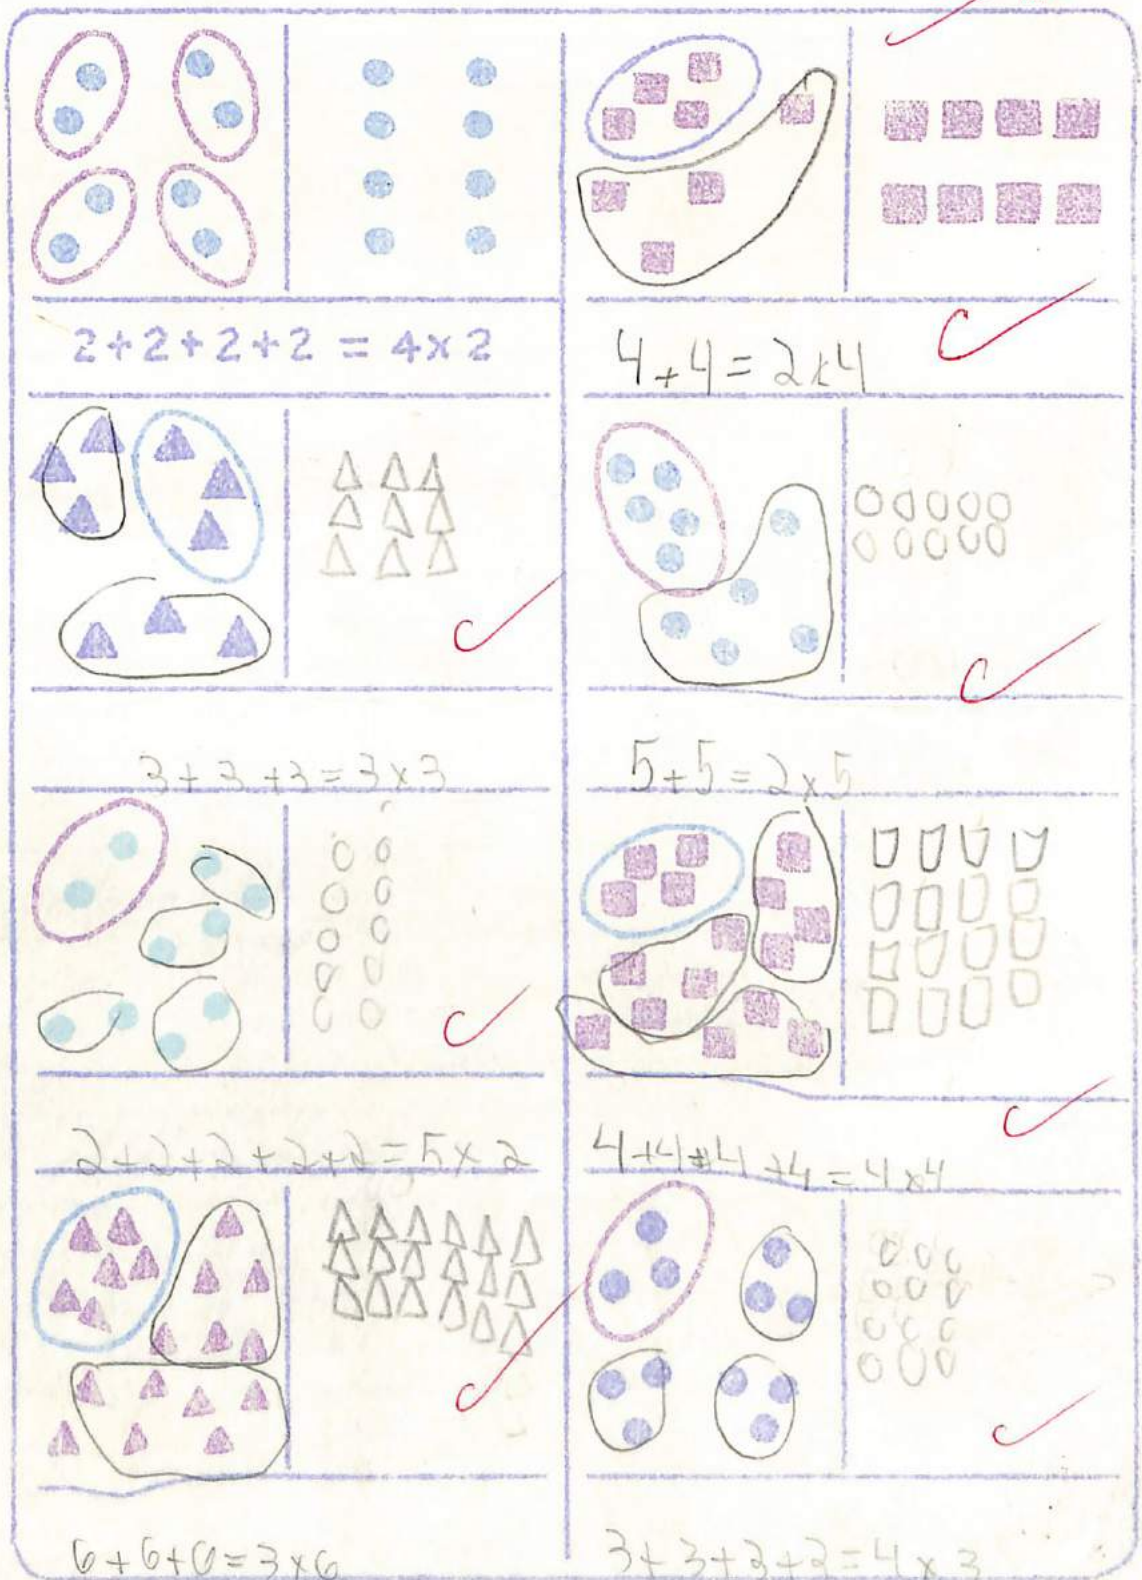 2+2+2+2 = 4×2
4+4=2×4
3+3+3=3×3
5+5=2×5
2+2+2+2+2=5×2
4+4+4+4=4×4
6+6+6=3×6
3+3+3+3=4×3